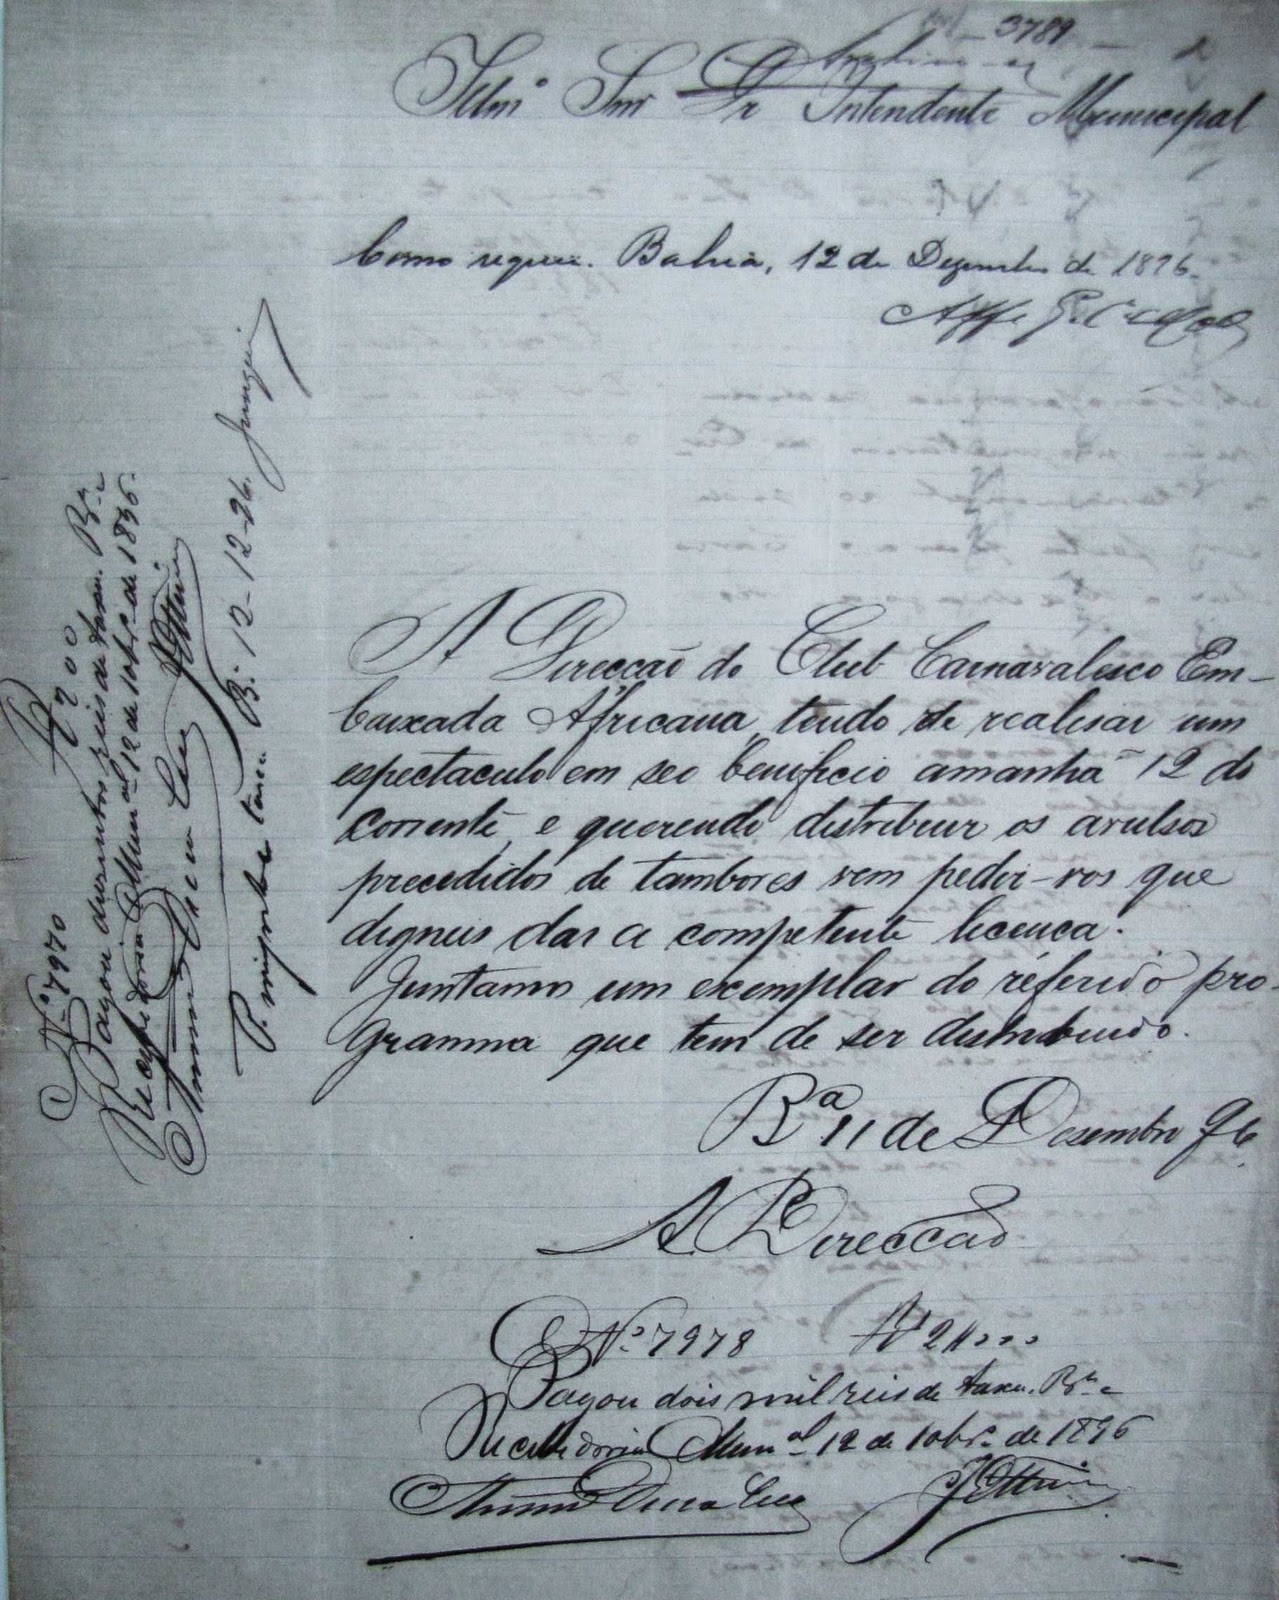 3789
Illmº Snr Dr Intendente Municipal
Como requer. Bahia, 12 de Dezembro de 1896.
A Direcção do Club Carnavalesco Em-
baixada Africana, tendo de realisar um
espectaculo em seo beneficio amanhã 12 do
corrente, e querendo distribuir os avulsos
precedidos de tambores vem pedir-vos que
digneis dar a competente licença.
Juntamos um exemplar do referido pro-
gramma que tem de ser distribuido.
Bª 11 de Desembro 96.
A Direcção
Nº 7978
Pagou dois mil reis de taxa. Bª e
Recebedoria Munal 12 de 10brº de 1896
Nº 7970 $200
Pagou duzentos reis de taxa. Bª e
Recebedoria Munal 12 de 10brº de 1896.
P. taxa. B. 12-12-96.